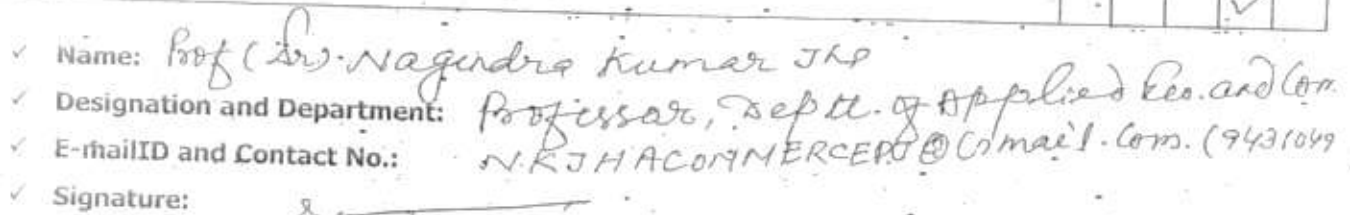 ✓ Name: Prof (Dr). Nagendra Kumar Jha
✓ Designation and Department: Professor, Deptt. of Applied Eco. and Com.
✓ E-mailID and Contact No.: N.KJHACOMMERCEPPU@Gmail.Com. (9431049
✓ Signature: